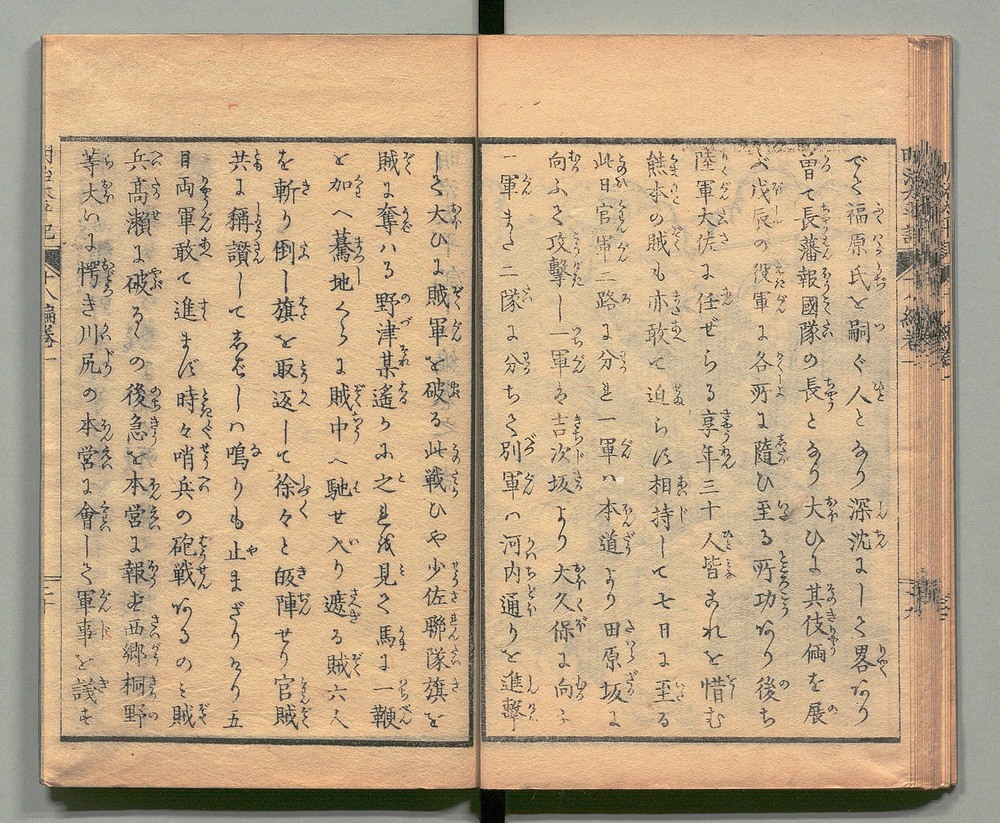 でく福原氏を嗣ぐ人となり深沈にして畧あり
曽て長藩報國隊の長となり大ひに其伎倆を展
べ戊辰の役軍に各所に隨ひ至る所功あり後ち
陸軍大佐に任ぜらる享年三十人皆これを惜む
熊本の賊も亦敢て迫らず相持して七日に至る
此日官軍二路に分れ一軍ハ本道より田原坂に
向ふて攻撃し一軍を吉次坂より大久保に向ふ
一軍また二隊に分ちて別軍ハ河内通りを進撃
して大ひに賊軍を破る此戦ひや少佐聯隊旗を
賊に奪ハる野津某遥かに之れを見て馬に一鞭
を加へ驀地くらに賊中へ馳せ入り遮る賊六人
を斬り倒し旗を取返して徐々と皈陣せり官賊
共に稱讃して
しハ鳴りも止まざりけり五
日両軍敢て進まず時々哨兵の砲戦あるのミ賊
兵高瀬に破るゝの後急を本営に報ず西郷桐野
等大いに愕き川尻の本営に會して軍事を議す
十八編巻一